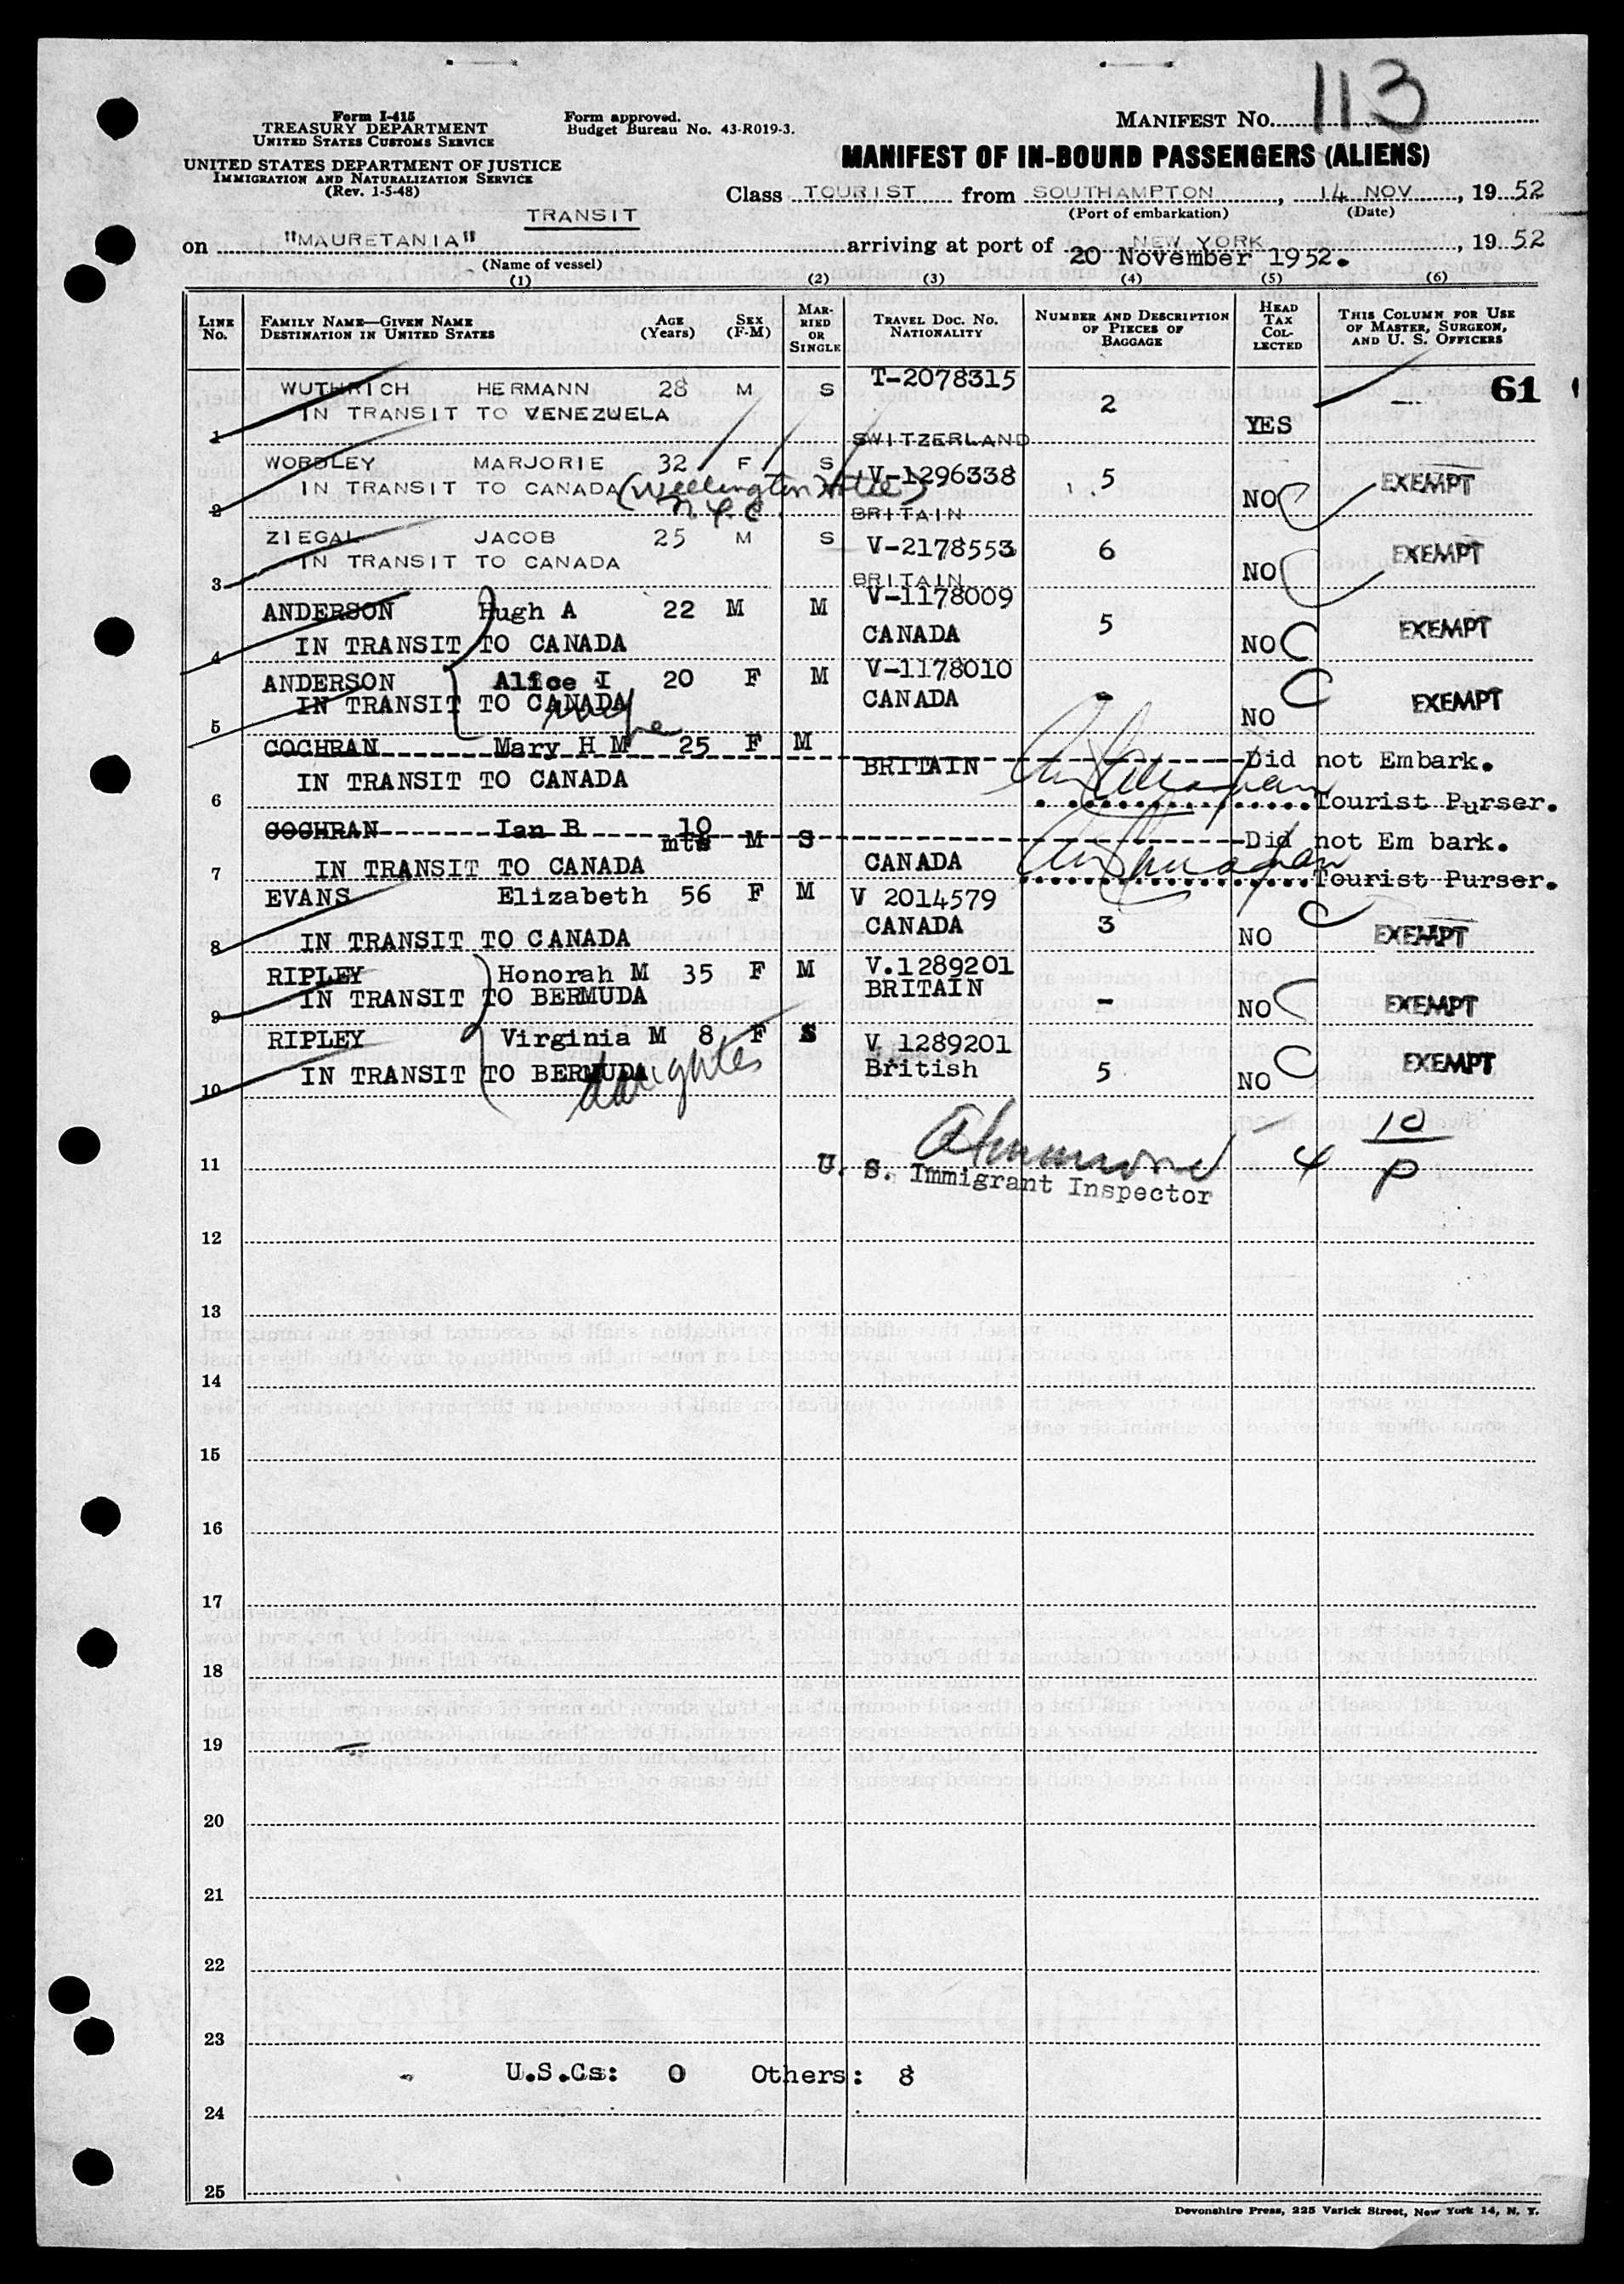 Form I-415
TREASURY DEPARTMENT
UNITED STATES CUSTOMS SERVICE
UNITED STATES DEPARTMENT OF JUSTICE
IMMIGRATION AND NATURALIZATION SERVICE
(Rev. 1-5-48)
Form approved.
Budget Bureau No. 43-R019-3.
MANIFEST NO. 113
MANIFEST OF IN-BOUND PASSENGERS (ALIENS)
Class TOURIST from SOUTHAMPTON, 14 NOV, 19 52
(Port of embarkation) (Date)
TRANSIT
on "MAURETANIA" arriving at port of NEW YORK, 19 52
20 November 1952.
(Name of vessel)
(1) (2) (3) (4) (5) (6)
LINE NO.
FAMILY NAME—GIVEN NAME
DESTINATION IN UNITED STATES
AGE (Years)
SEX (F-M)
MARRIED OR SINGLE
TRAVEL DOC. NO.
NATIONALITY
NUMBER AND DESCRIPTION OF PIECES OF BAGGAGE
HEAD TAX COLLECTED
THIS COLUMN FOR USE OF MASTER, SURGEON, AND U. S. OFFICERS
61
WUTHRICH HERMANN 28 M S T-2078315 2
1 IN TRANSIT TO VENEZUELA SWITZERLAND YES
WORDLEY MARJORIE 32 F S V-1296338 5 EXEMPT
2 IN TRANSIT TO CANADA (Wellington Hotel) BRITAIN NO
N.Y.C.
ZIEGAL JACOB 25 M S V-2178553 6 EXEMPT
3 IN TRANSIT TO CANADA BRITAIN NO
ANDERSON Hugh A 22 M M V-1178009 5 EXEMPT
4 IN TRANSIT TO CANADA CANADA NO
ANDERSON Alice I 20 F M V-1178010 - EXEMPT
5 IN TRANSIT TO CANADA CANADA NO
wife
COCHRAN Mary H M 25 F M BRITAIN Did not Embark.
6 IN TRANSIT TO CANADA Tourist Purser.
COCHRAN Ian B 10 mts M S Did not Em bark.
7 IN TRANSIT TO CANADA CANADA Tourist Purser.
EVANS Elizabeth 56 F M V 2014579 3
8 IN TRANSIT TO CANADA CANADA NO EXEMPT
RIPLEY Honorah M 35 F M V.1289201
9 IN TRANSIT TO BERMUDA BRITAIN - NO EXEMPT
RIPLEY Virginia M 8 F S V 1289201
10 IN TRANSIT TO BERMUDA British 5 NO EXEMPT
daughter
11 U. S. Immigrant Inspector 4 10
P
12
13
14
15
16
17
18
19
20
21
22
23
U.S.Cs: 0 Others: 8
24
25
Devonshire Press, 225 Varick Street, New York 14, N. Y.